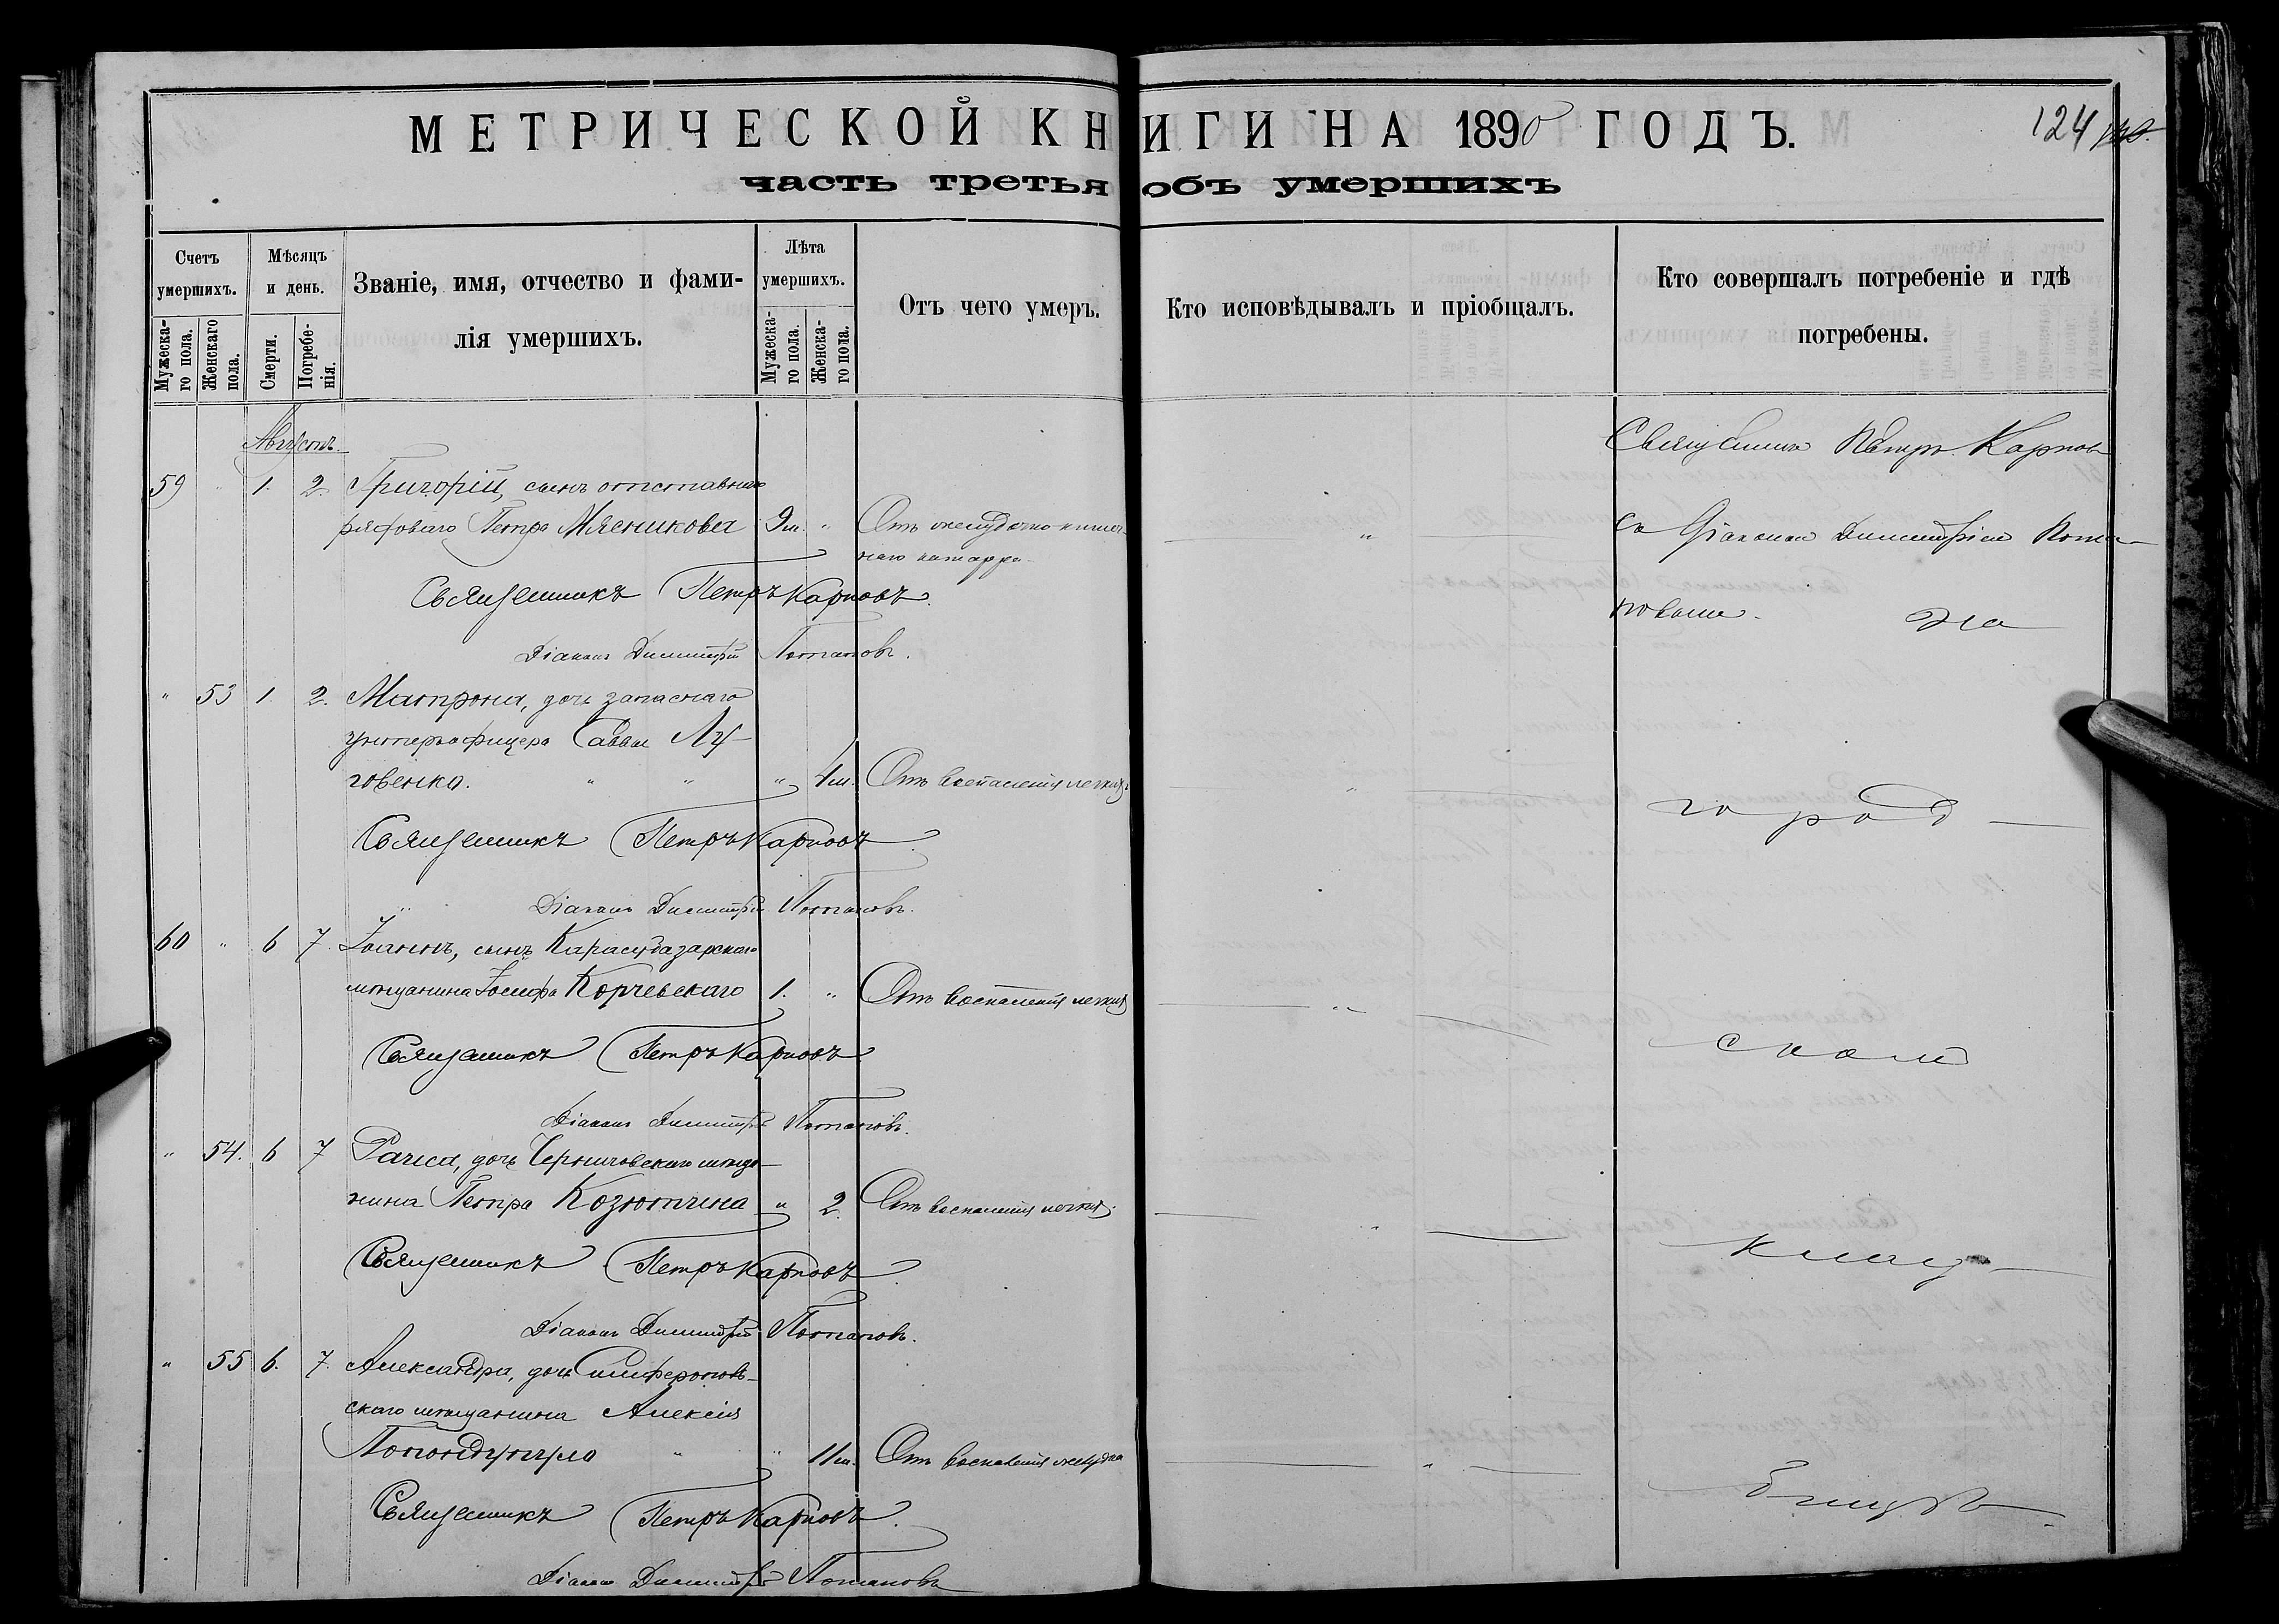 МЕТРИЧЕСКОЙ КНИГИ НА 1890 ГОДЪ.
124
часть третья объ умершихъ
Счетъ умершихъ.
Мѣсяцъ и день.
Званіе, имя, отчество и фами-
лія умершихъ.
Лѣта умершихъ.
Отъ чего умеръ.
Кто исповѣдывалъ и пріобщалъ.
Кто совершалъ погребеніе и гдѣ
погребены.
Мужеска-
го пола.
Женскаго
пола.
Смерти.
Погребе-
нія.
Мужеска-
го пола.
Женска-
го пола.
Августъ.
Священникъ Петръ Карповъ
59 " 1. 2. Григорій, сынъ отставнаго
рядоваго Петра Мясникова 9 м. " Отъ желудочно-кишеч-
наго катарра.
съ Діакономъ Димитріемъ Пота-
повымъ. На
Священникъ Петръ Карповъ.
Діаконъ Димитрій Потаповъ.
" 53 1. 2. Матрона, дочь запаснаго
унтеръ-офицера Саввы Лу-
говенко. " " " 4 м. Отъ воспаленія легкихъ "
город-
Священникъ Петръ Карповъ.
Діаконъ Димитрій Потаповъ.
60 " 6 7. Іоаннъ, сынъ Карасубазарскаго
мѣщанина Іосифа Корчевскаго 1. " Отъ воспаленія легкихъ "
скомъ
Священникъ Петръ Карповъ.
Діаконъ Димитрій Потаповъ.
" 54. 6 7 Раиса, дочь Черниговскаго мѣща-
нина Петра Козютина " 2. Отъ воспаленія легкихъ. "
клад-
Священникъ Петръ Карповъ.
Діаконъ Димитрій Потаповъ.
" 55 6. 7. Александра, дочь Симферополь-
скаго мѣщанина Алексія
" " 11 м. Отъ воспаленія желудка "
бищѣ.
Священникъ Петръ Карповъ.
Діаконъ Димитрій Потаповъ